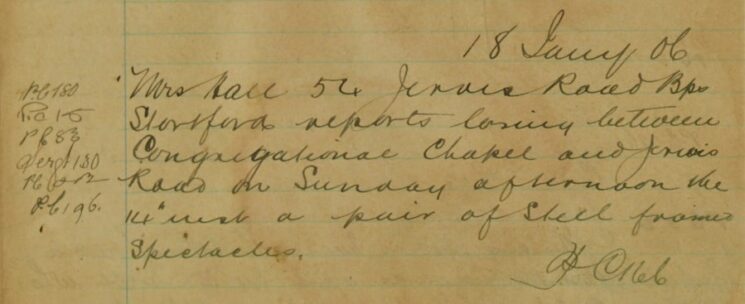 18 Jany 06
Mrs Hall 54 Jervis Road Bps
Stortford reports losing between
Congregational Chapel and Jervis
Road on Sunday afternoon the
14" inst a pair of Steel framed
Spectacles.
PC 180
PC 15
PC 83
Serg 180
PC
PC 196.